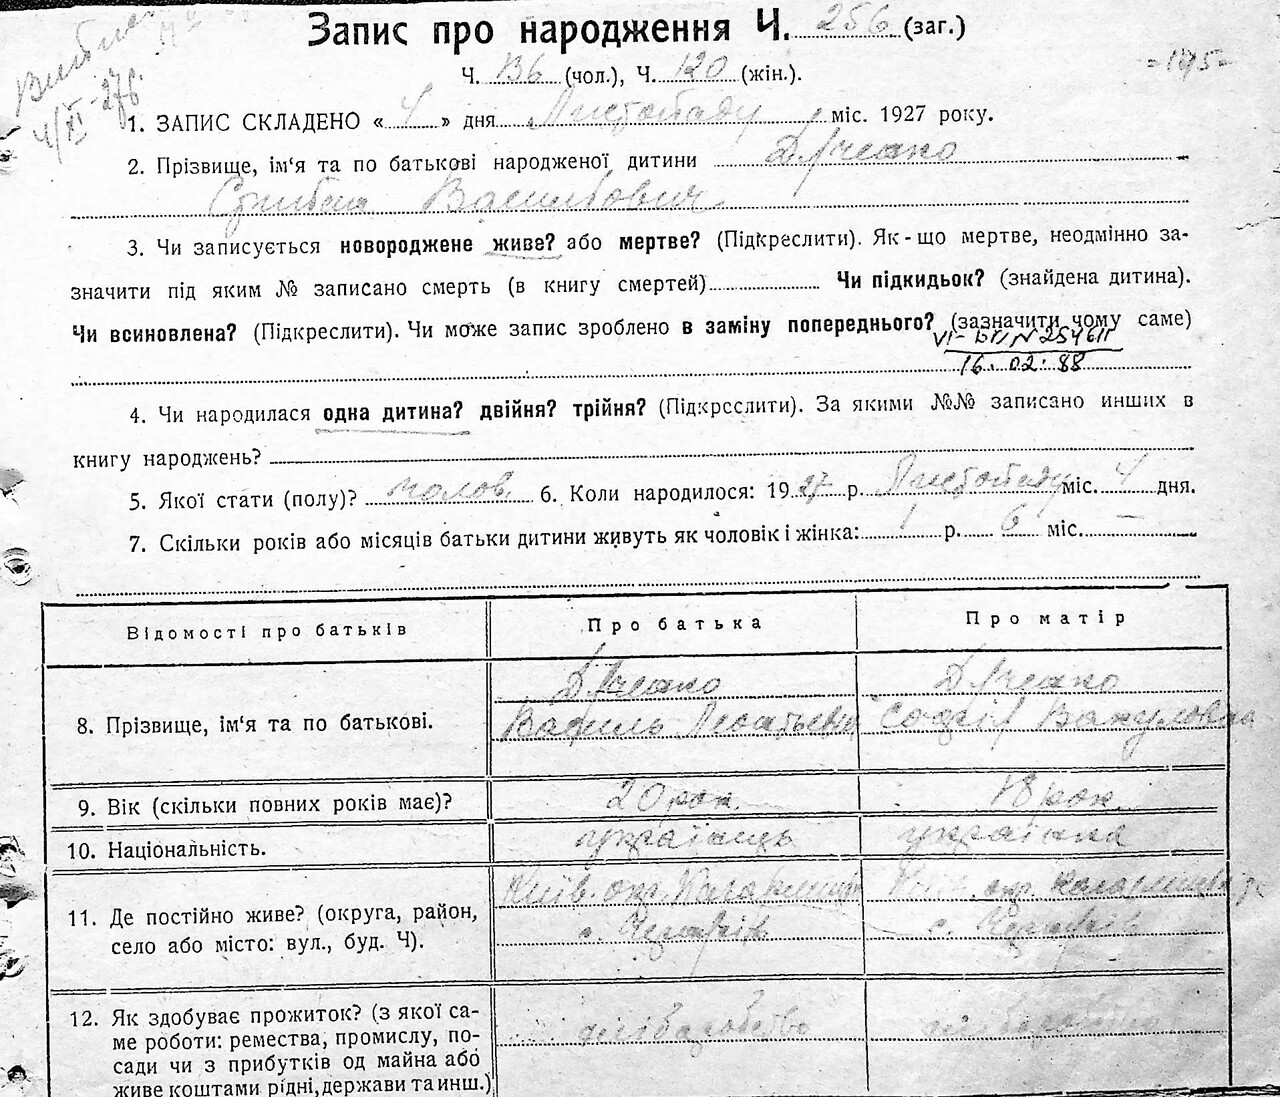 Запис про народження Ч. 256 (заг.)
Ч. 136 (чол.), Ч. 120 (жін.).
- 195 -
1. ЗАПИС СКЛАДЕНО « 4 » дня Листопаду міс. 1927 року.
2. Прізвище, ім‘я та по батькові народженої дитини
Васильович
3. Чи записується новороджене живе? або мертве? (Підкреслити). Як-що мертве, неодмінно за-
значити під яким № записано смерть (в книгу смертей) Чи підкидьок? (знайдена дитина).
Чи всиновлена? (Підкреслити). Чи може запис зроблено в заміну попереднього? (зазначити чому саме)
16.02.88
4. Чи народилася одна дитина? двійня? трійня? (Підкреслити). За якими №№ записано инших в
книгу народжень?
5. Якої статі (полу)? чолов. 6. Коли народилося: 1927 р. Листопаду міс. 4 дня.
7. Скільки років або місяців батьки дитини живуть як чоловік і жінка: 1 р. 6 міс. —
Відомості про батьків Про батька Про матір
8. Прізвище, ім‘я та по батькові.
Василь Софія Вакуловна
9. Вік (скільки повних років має)? 20 рок. 18 рок.
10. Національність. українець українка
11. Де постійно живе? (округа, район, Київ. окр. Кагарлицьк Київ. окр. Кагарлицьк. р
село або місто: вул., буд. Ч). с. с.
12. Як здобуває прожиток? (з якої са- хліборобство хліборобство
ме роботи: ремества, промислу, по-
сади чи з прибутків од майна або
живе коштами рідні, держави та инш.)